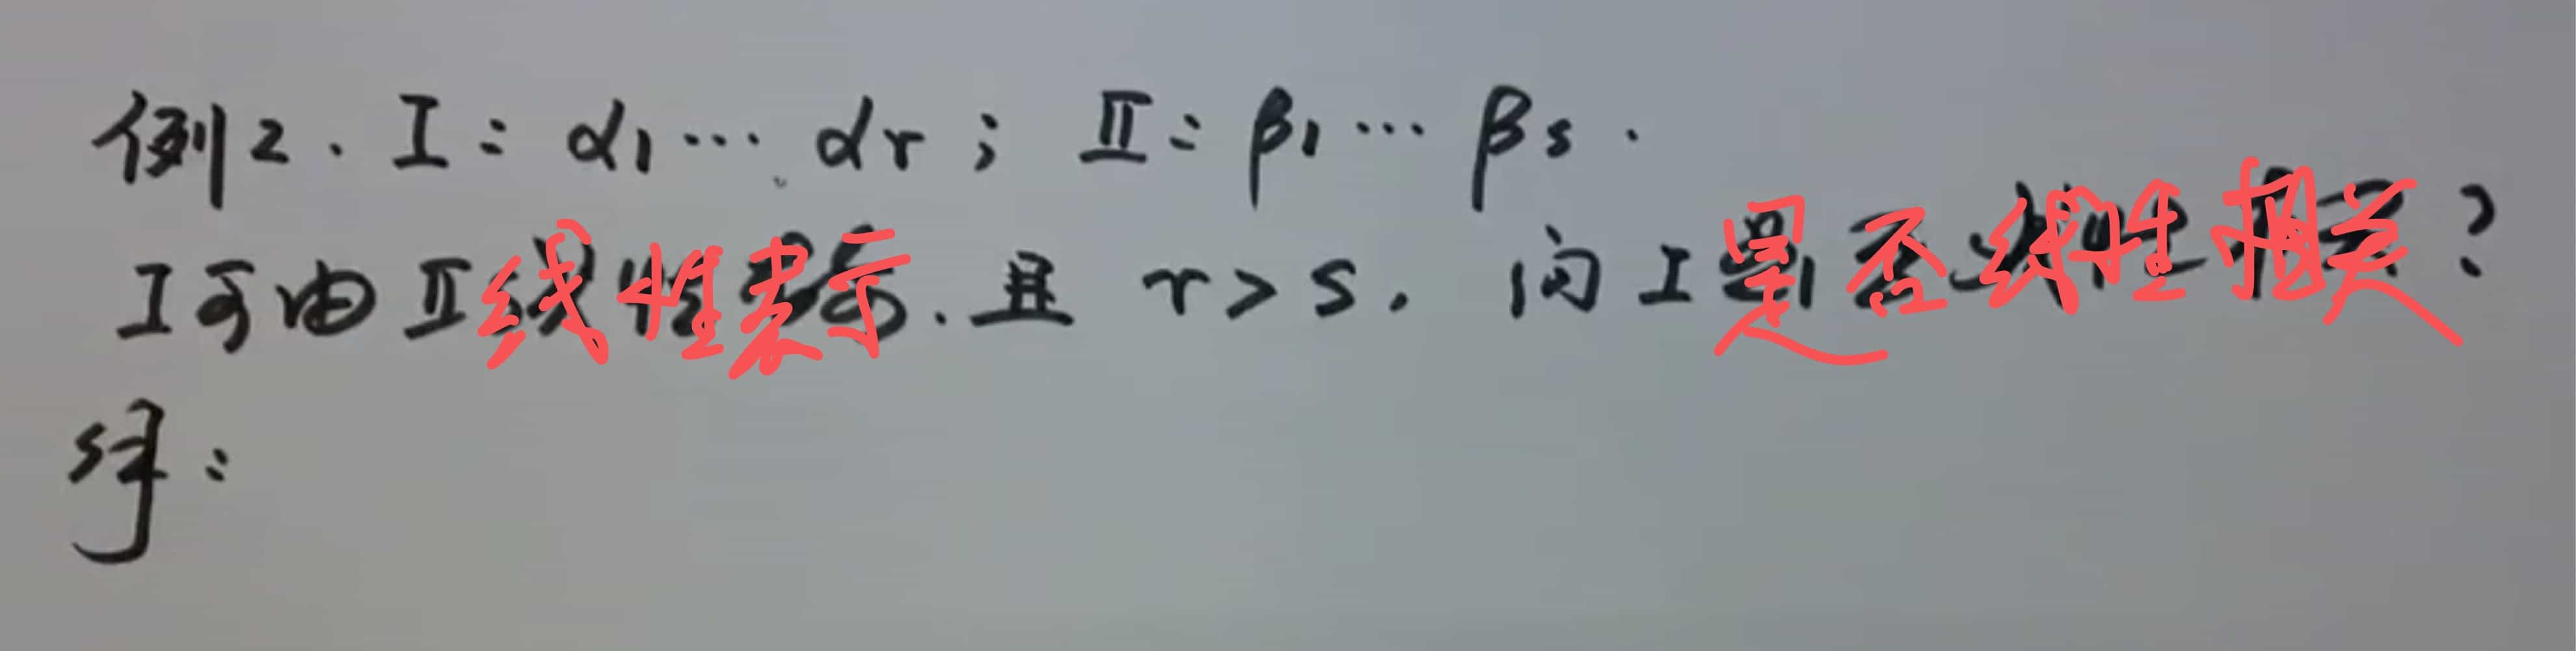 例2. I: α1 … αr ; II: β1 … βs .
I可由II线性表示. 且 r>s. 问I是否线性相关?
解: